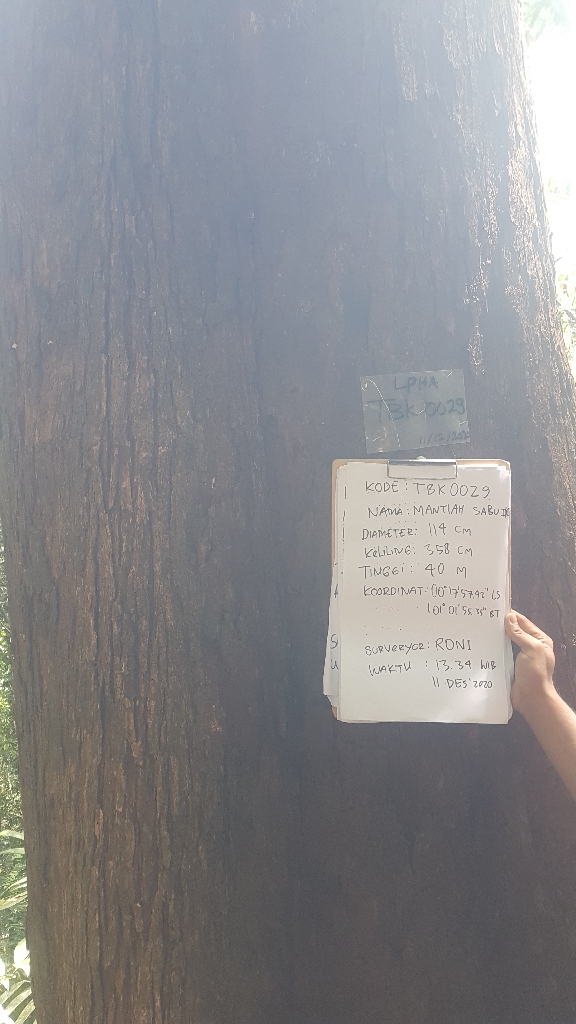 LPHA
TBK 0029
11/12/202
KODE : TBK0029
NAMA : MANTIAH SABU
DIAMETER : 114 CM
KELILING : 358 CM
TINGGI : 40 M
KOORDINAT : 00° 17'57.92" LS
101° 01' 55.35" BT
SURVERYOR : RONI
WAKTU : 13.34 WIB
11 DES' 2020